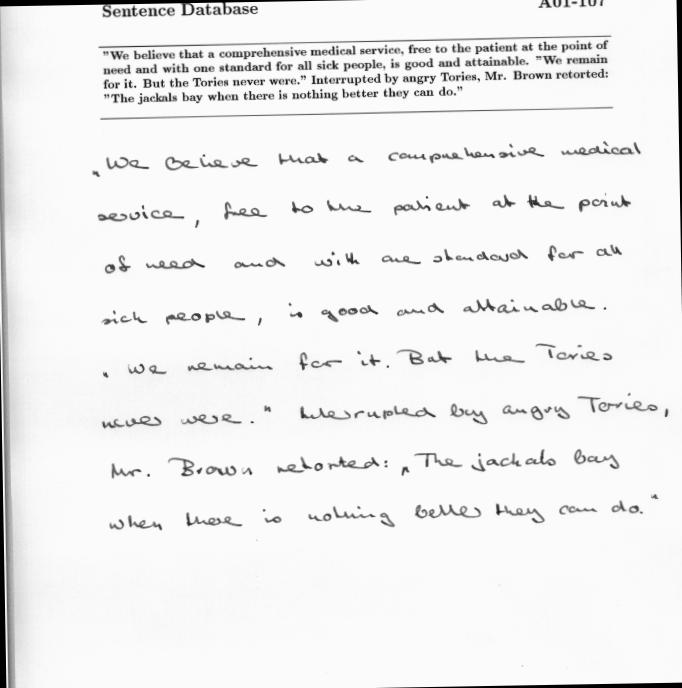 Sentence Database A01-107
"We believe that a comprehensive medical service, free to the patient at the point of
need and with one standard for all sick people, is good and attainable. "We remain
for it. But the Tories never were." Interrupted by angry Tories, Mr. Brown retorted:
"The jackals bay when there is nothing better they can do."
„We believe that a comprehensive medical
service, free to the patient at the point
of need and with one standard for all
sick people, is good and attainable.
„We remain for it. But the Tories
never were." Interrupted by angry Tories,
Mr. Brown retorted: „The jackals bay
when there is nothing better they can do."